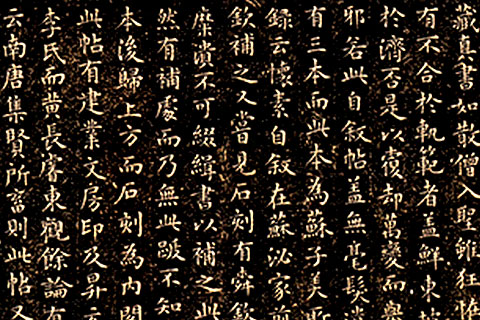 藏真書如散僧入聖雖狂恠
有不合於軌範者蓋鮮東坡
於濟否是以覆却萬變而舉
邪若此自叙帖蓋無毫髮
有三本而此本為蘇子美所
錄云懷素自叙在蘇泌家前
欽補之又嘗見石刻有舜欽
糜潰不可綴緝書以補之此
然有補處而乃無此跋不知
本後歸上方而石刻為内閣
此帖有建業文房印及昇元
李氏而黄長睿東觀餘論有
云南唐集賢所畜則此帖又